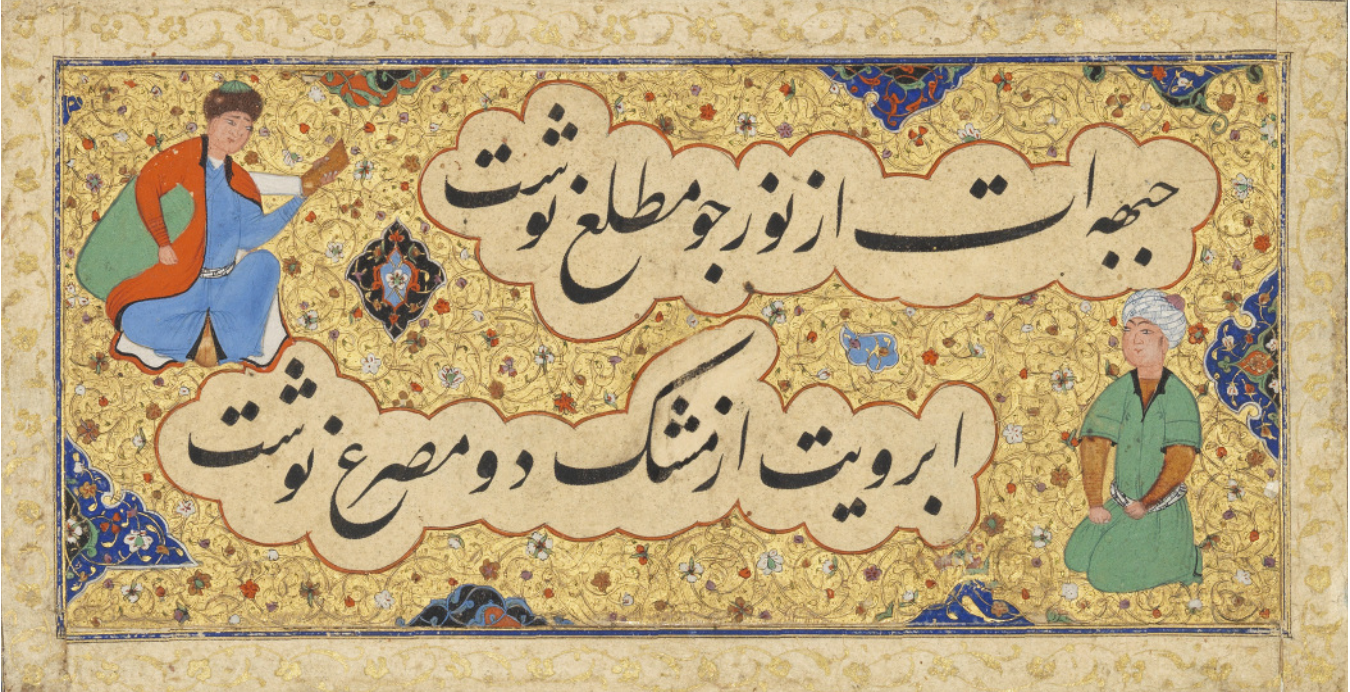 جبهه ات از نور جو مطلع نوشت
ابرویت از مشک دو مصرع نوشت